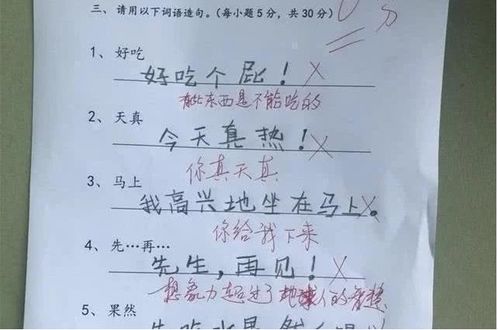 三、请用以下词语造句。(每小题5分，共30分)
1、好吃
好吃个屁！
有些东西是不能吃的
2、天真
今天真热！
你真天真
3、马上
我高兴地坐在马上。
你给我下来
4、先……再……
先生，再见！
想象力超过了地球人的智慧
5、果然
先吃水果，然